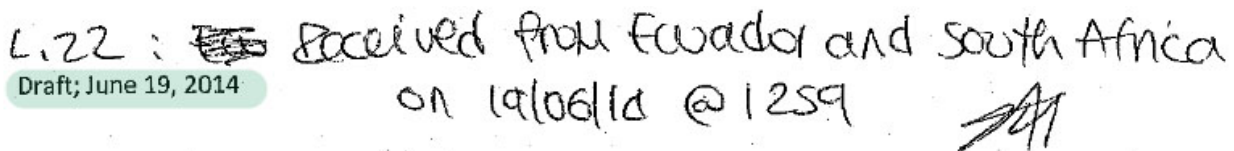 L.22 : Received from Ecuador and South Africa
Draft; June 19, 2014
on 19/06/14 @ 1259